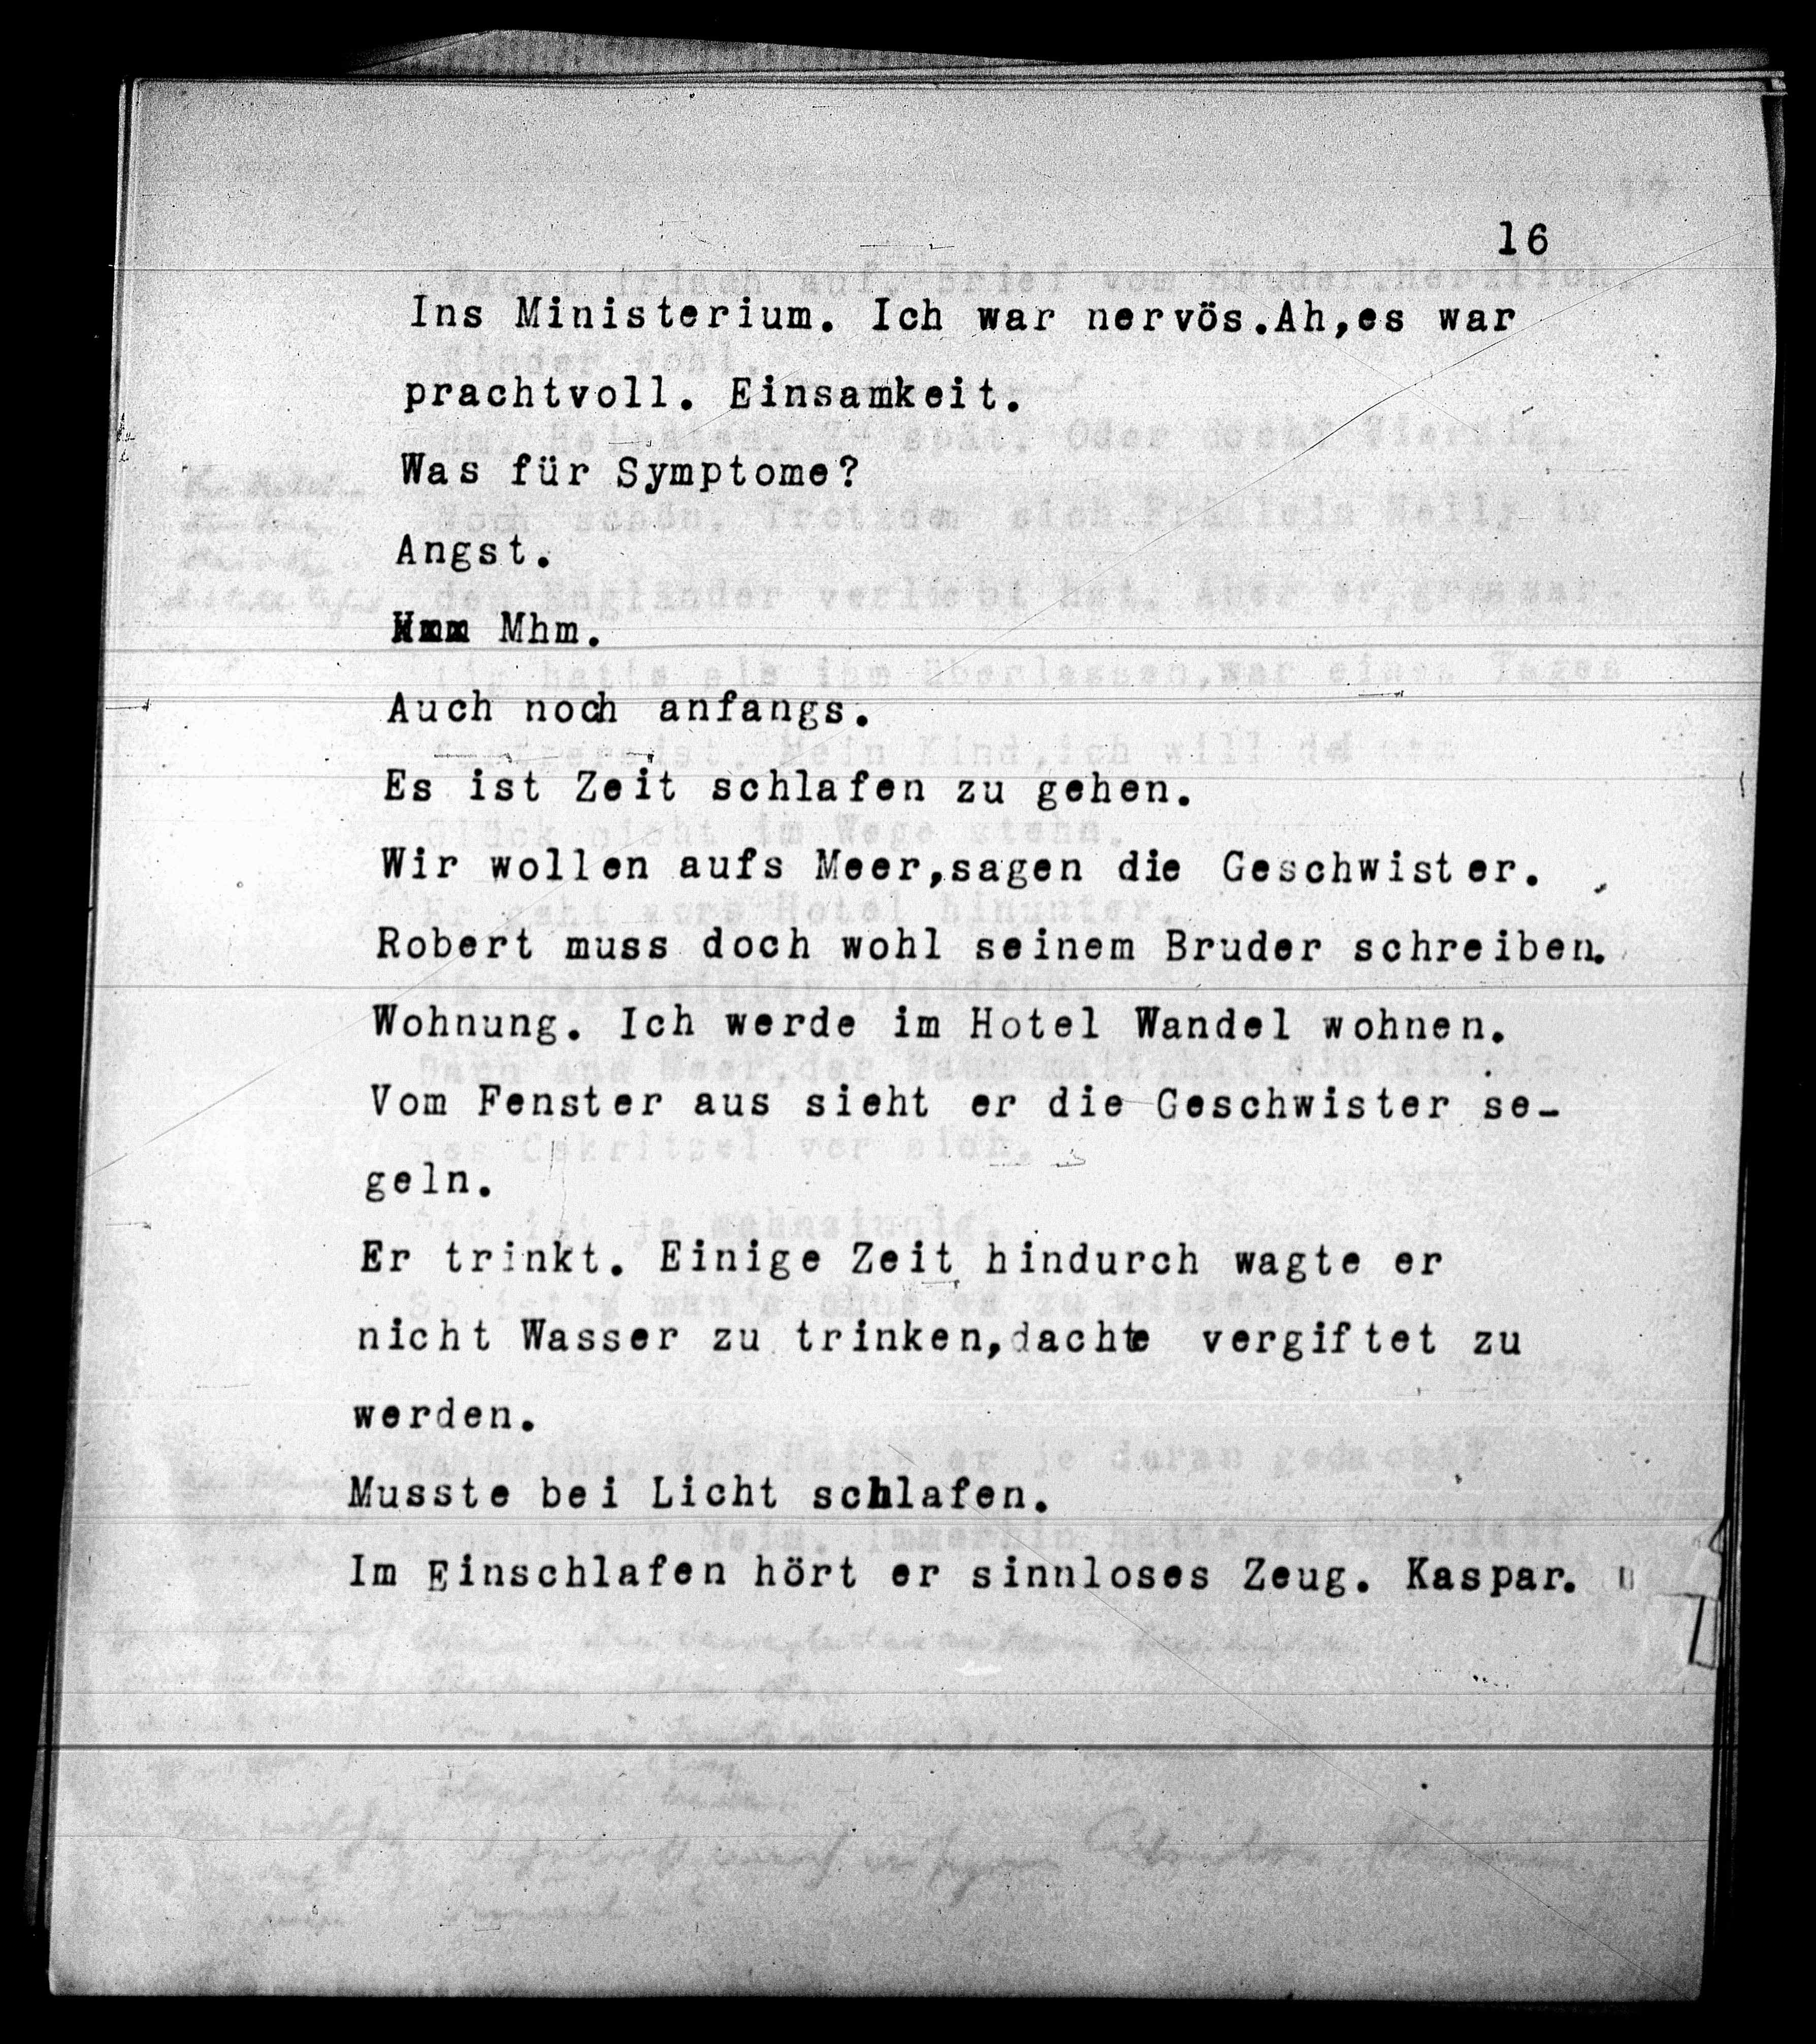 16
Ins Ministerium. Ich war nervös.Ah,es war
prachtvoll. Einsamkeit.
Was für Symptome?
Angst.
Mhm.
Auch noch anfangs.
Es ist Zeit schlafen zu gehen.
Wir wollen aufs Meer,sagen die Geschwister.
Robert muss doch wohl seinem Bruder schreiben.
Wohnung. Ich werde im Hotel Wandel wohnen.
Vom Fenster aus sieht er die Geschwister se-
geln.
Er trinkt. Einige Zeit hindurch wagte er
nicht Wasser zu trinken,dachte vergiftet zu
werden.
Musste bei Licht schlafen.
Im Einschlafen hört er sinnloses Zeug. Kaspar.